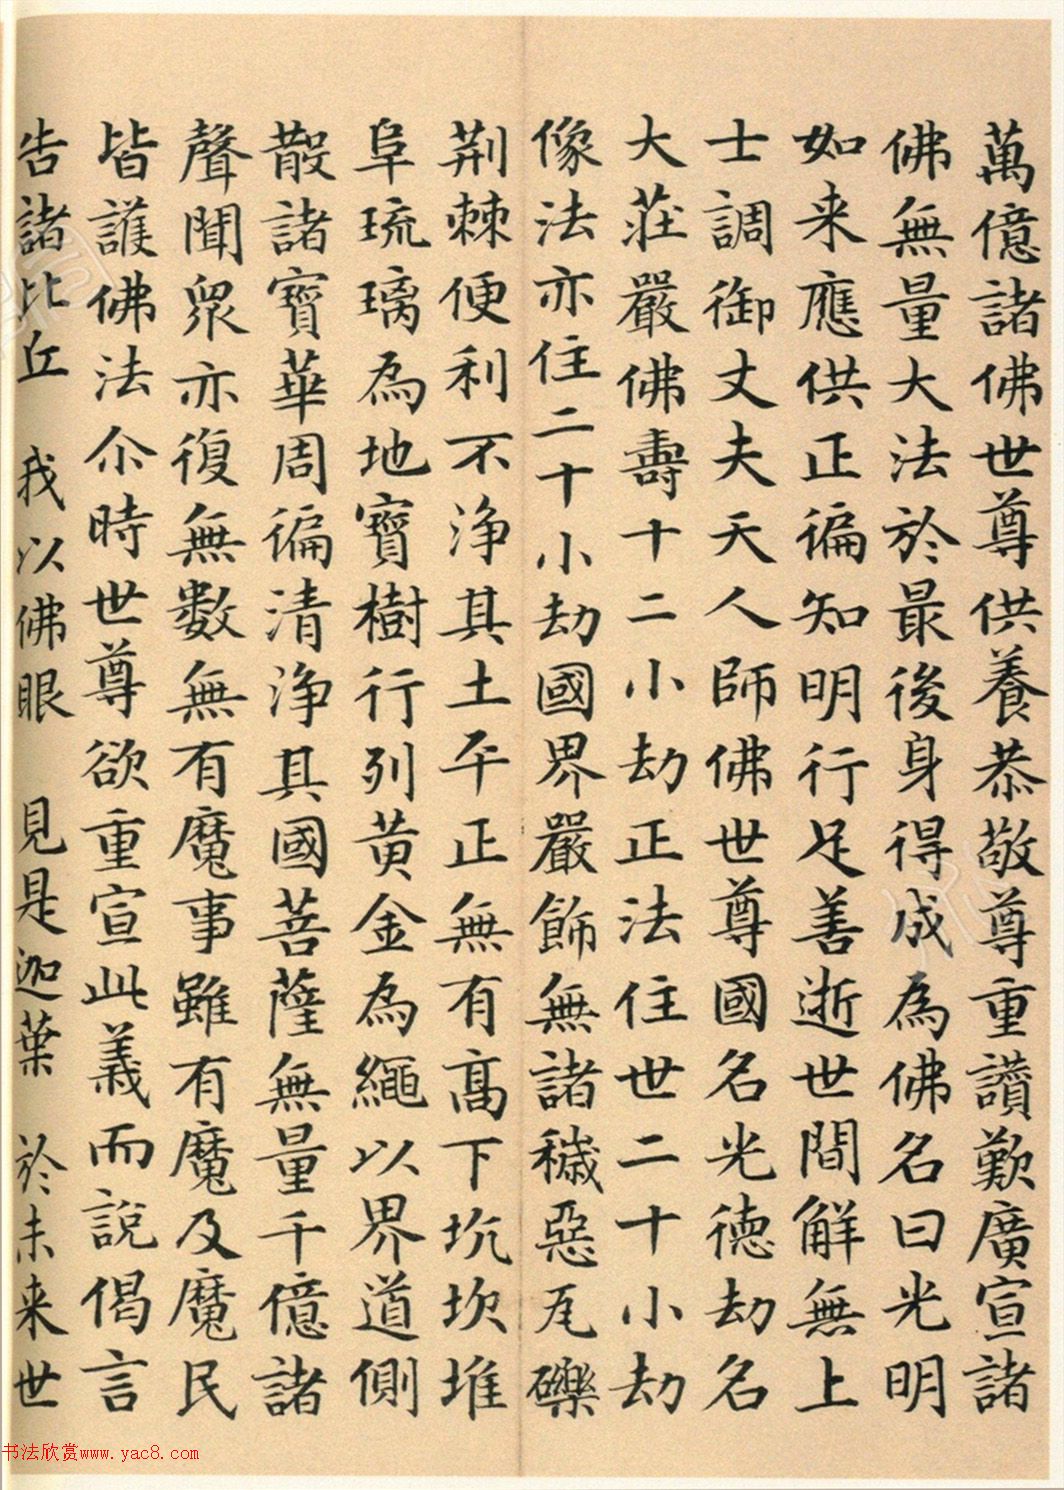 萬億諸佛世尊供養恭敬尊重讚歎廣宣諸
佛無量大法於最後身得成為佛名曰光明
如来應供正徧知明行足善逝世間解無上
士調御丈夫天人師佛世尊國名光德劫名
大莊嚴佛壽十二小劫正法住世二十小劫
像法亦住二十小劫國界嚴飾無諸穢惡瓦礫
荆棘便利不淨其土平正無有高下坑坎堆
阜琉璃為地寶樹行列黄金為繩以界道側
散諸寶華周徧清淨其國菩薩無量千億諸
聲聞衆亦復無數無有魔事雖有魔及魔民
皆護佛法尒時世尊欲重宣此義而說偈言
告諸比丘 我以佛眼 見是迦葉 於未来世
书法欣赏www.yac8.com